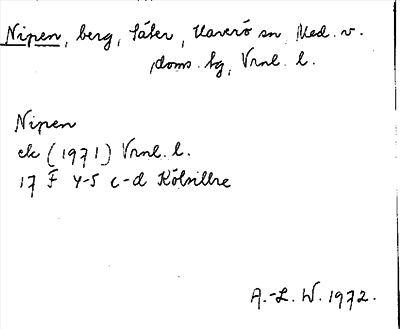 Nipen, berg, Säter, Haverö sn Med. v.
doms. hg, Vrnl. l.
Nipen
ek (1971) Vrnl. l.
17 F 4-5 c-d Kölsillre
A.-L. W. 1972.